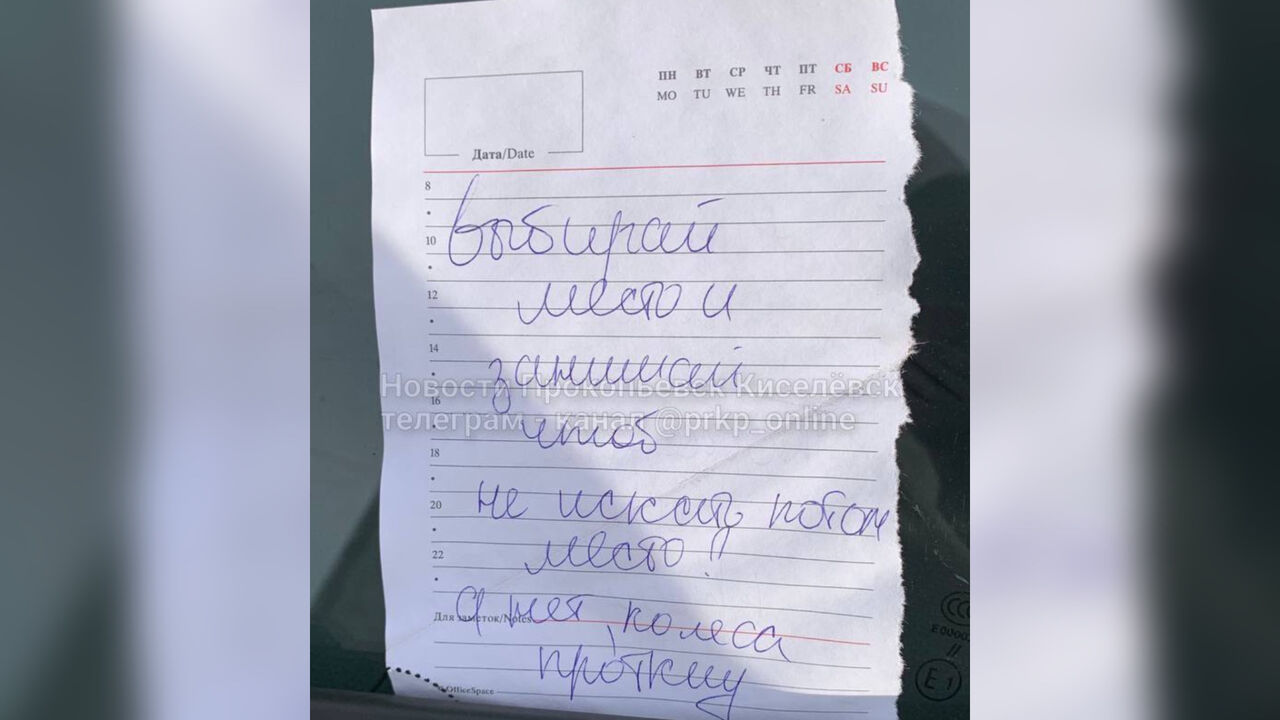 ПН ВТ СР ЧТ ПТ СБ ВС
MO TU WE TH FR SA SU
Дата/Date
8
выбирай
10
место и
12
14
занимай
Новости Прокопьевск Киселёвск
16
телеграм - канал @prkp_online
чтоб
18
не искать потом
20
место!!
22
а нет, колеса
Для заметок/Notes
проткну
OfficeSpace
E1